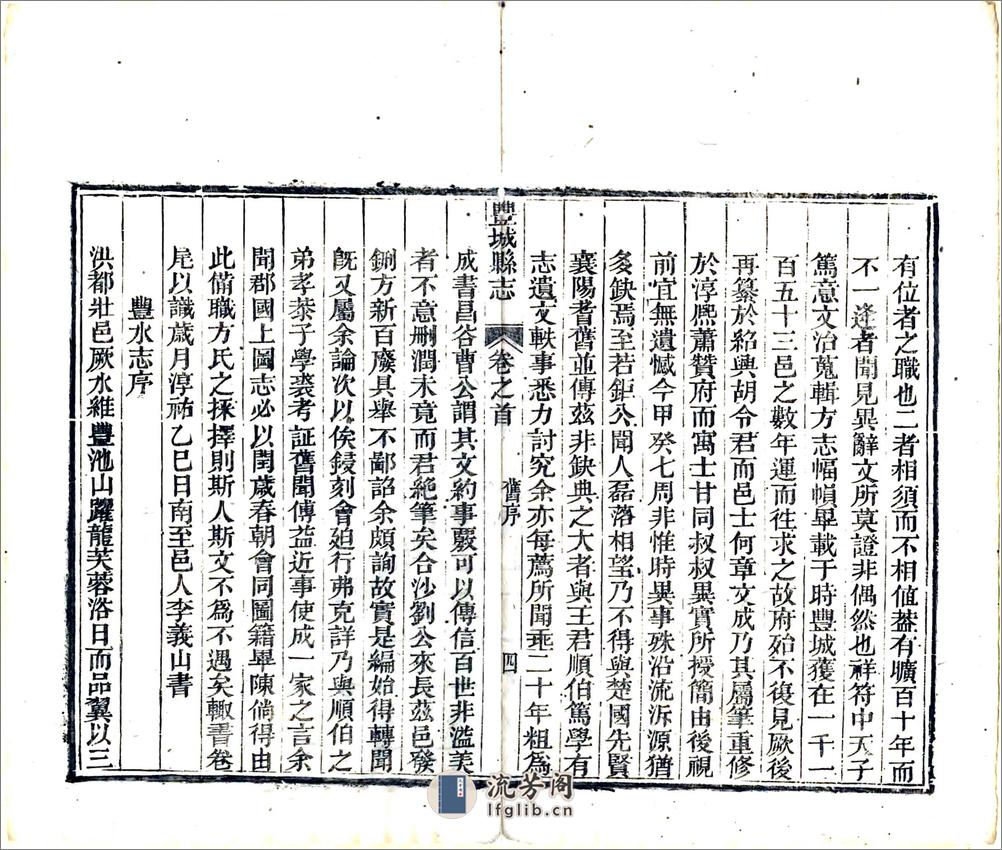 有位者之職也二者相須而不相值葢有曠百十年而
不一逢者聞見異辭文所莫證非偶然也祥符中天子
篤意文治蒐輯方志幅幀畢載于時豐城獲在一千一
百五十三邑之數年運而徃求之故府殆不復見厥後
再纂於紹興胡令君而邑士何章文成乃其屬筆重修
於淳熈蕭贊府而寓士甘同叔叔異實所授簡由後視
前宜無遺憾今甲癸七周非惟時異事殊沿流泝源猶
多缺焉至若鉅公聞人磊落相望乃不得與楚國先賢
襄陽耆舊並傳茲非缺典之大者與王君順伯篤學有
志遺文軼事悉力討究余亦每薦所聞乖二十年粗為
豐城縣志
卷之首
舊序
四
成書昌谷曹公謂其文約事覈可以傳信百世非濫美
者不意刪潤未竟而君絶筆矣合沙劉公來長茲邑發
鉶方新百廢具舉不鄙詔余頗詢故實是編始得轉聞
旣又屬余論次以俟鋟刻會廹行弗克詳乃與順伯之
弟孝㳟子學裘考証舊聞傳益近事使成一家之言余
聞郡國上圖志必以閏歲春朝會同圖籍畢陳倘得由
此備職方氏之採擇則斯人斯文不為不遇矣輙書卷
尾以識歲月淳祐乙巳日南至邑人李義山書
豐水志序
洪都壯邑厥水維豐池山躍龍芙蓉洛日而品翼以三
流芳阁
lfglib.cn